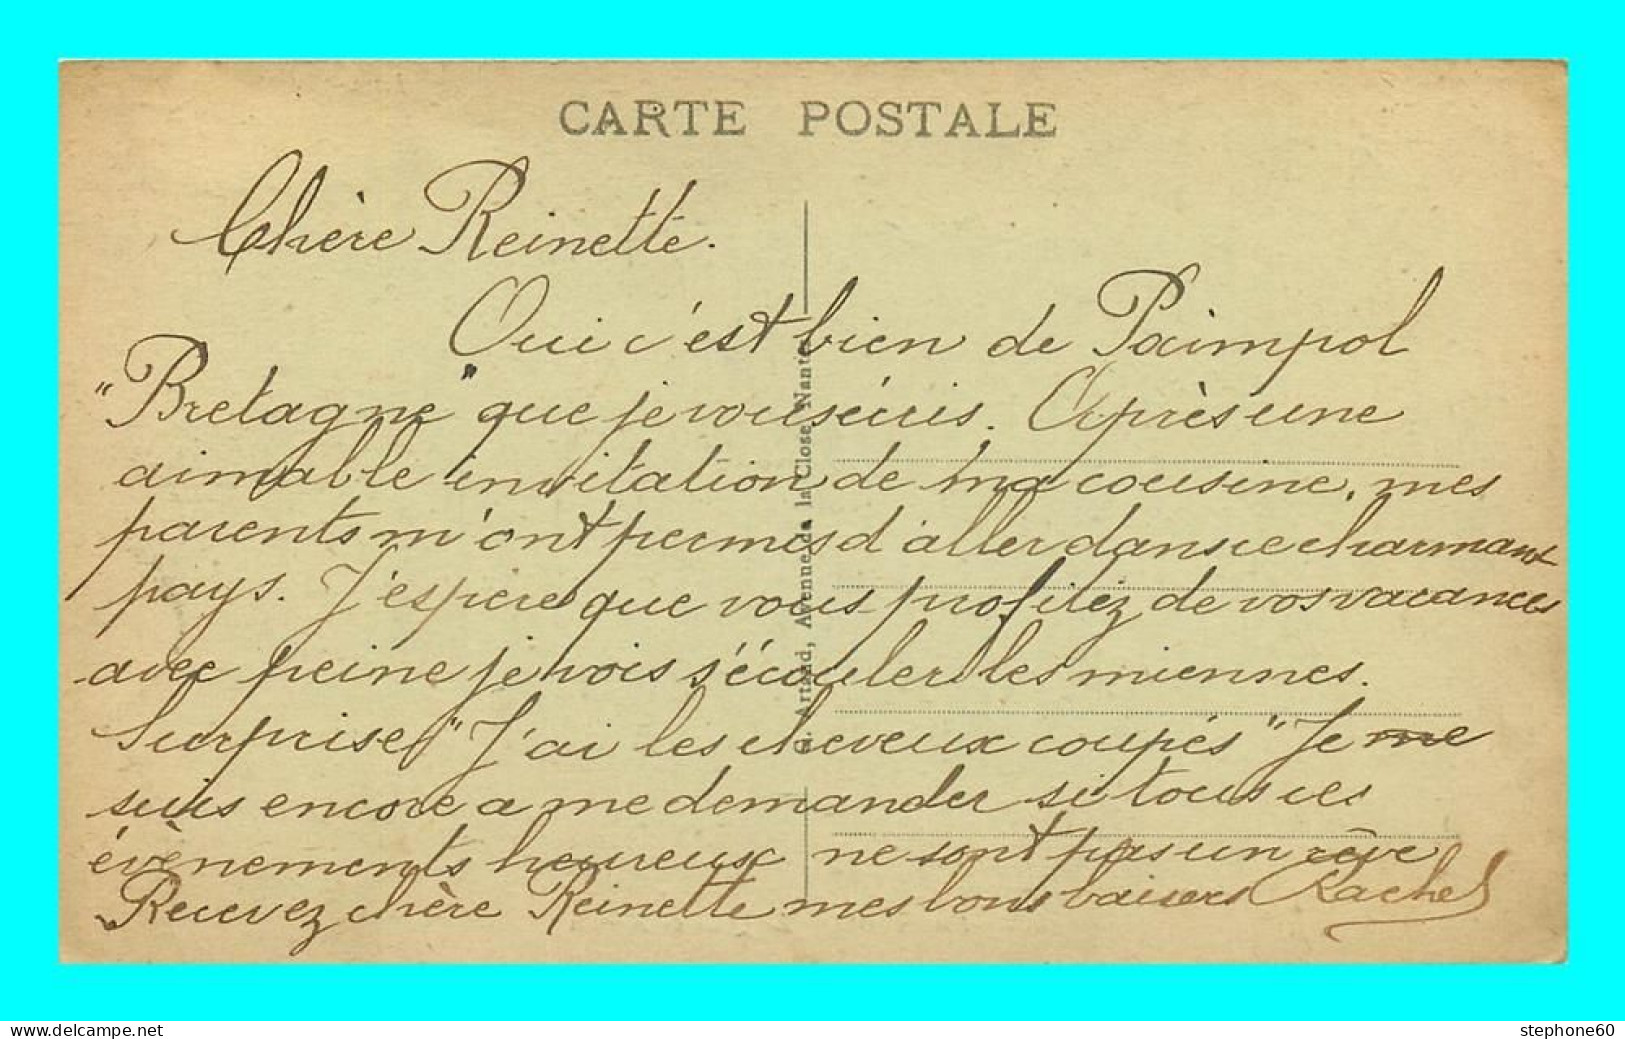 CARTE POSTALE
Chère Reinette.
Oui c'est bien de Paimpol
"Bretagne" que je vous écris. Après une
aimable invitation de ma cousine, mes
parents m'ont permis d'aller dans ce charmant
pays. J'espère que vous profitez de vos vacances
avec peine je vois s'écouler les miennes.
Surprise "J'ai les cheveux coupés" Je me
suis encore a me demander si tous ces
évènements heureux ne sont pas un rêve
Recevez chère Reinette mes bons baisers Rachel
Artaud, Avenue de la Close Nantes
www.delcampe.net
stephone60